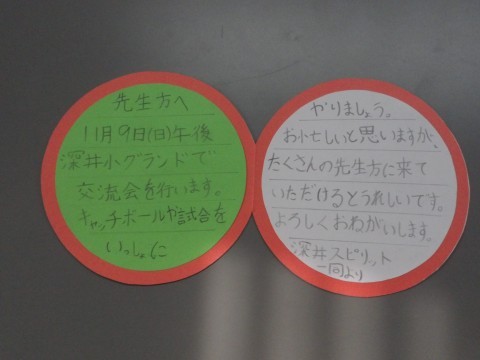 先生方へ
11月9日(日)午後
深井小グランドで
交流会を行います。
キャッチボールや試合を
いっしょに
やりましょう。
お忙しいと思いますが、
たくさんの先生方に来て
いただけるとうれしいです。
よろしくおねがいします。
深井スピリット
一同より